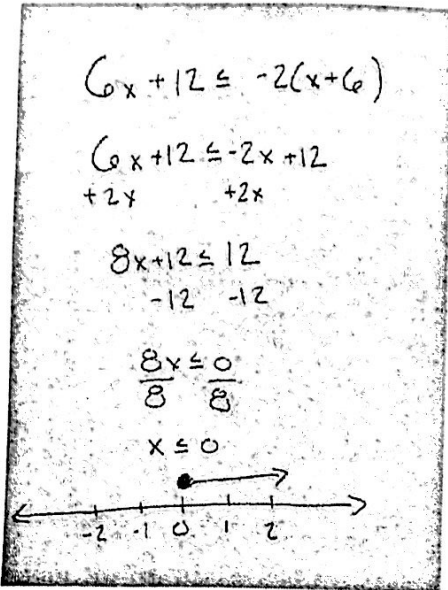 6x + 12 ≤ -2(x+6)
6x +12 ≤ -2x +12
+2x +2x
8x+12 ≤ 12
-12 -12
8x ≤ 0
8 8
x ≤ 0
-2 -1 0 1 2